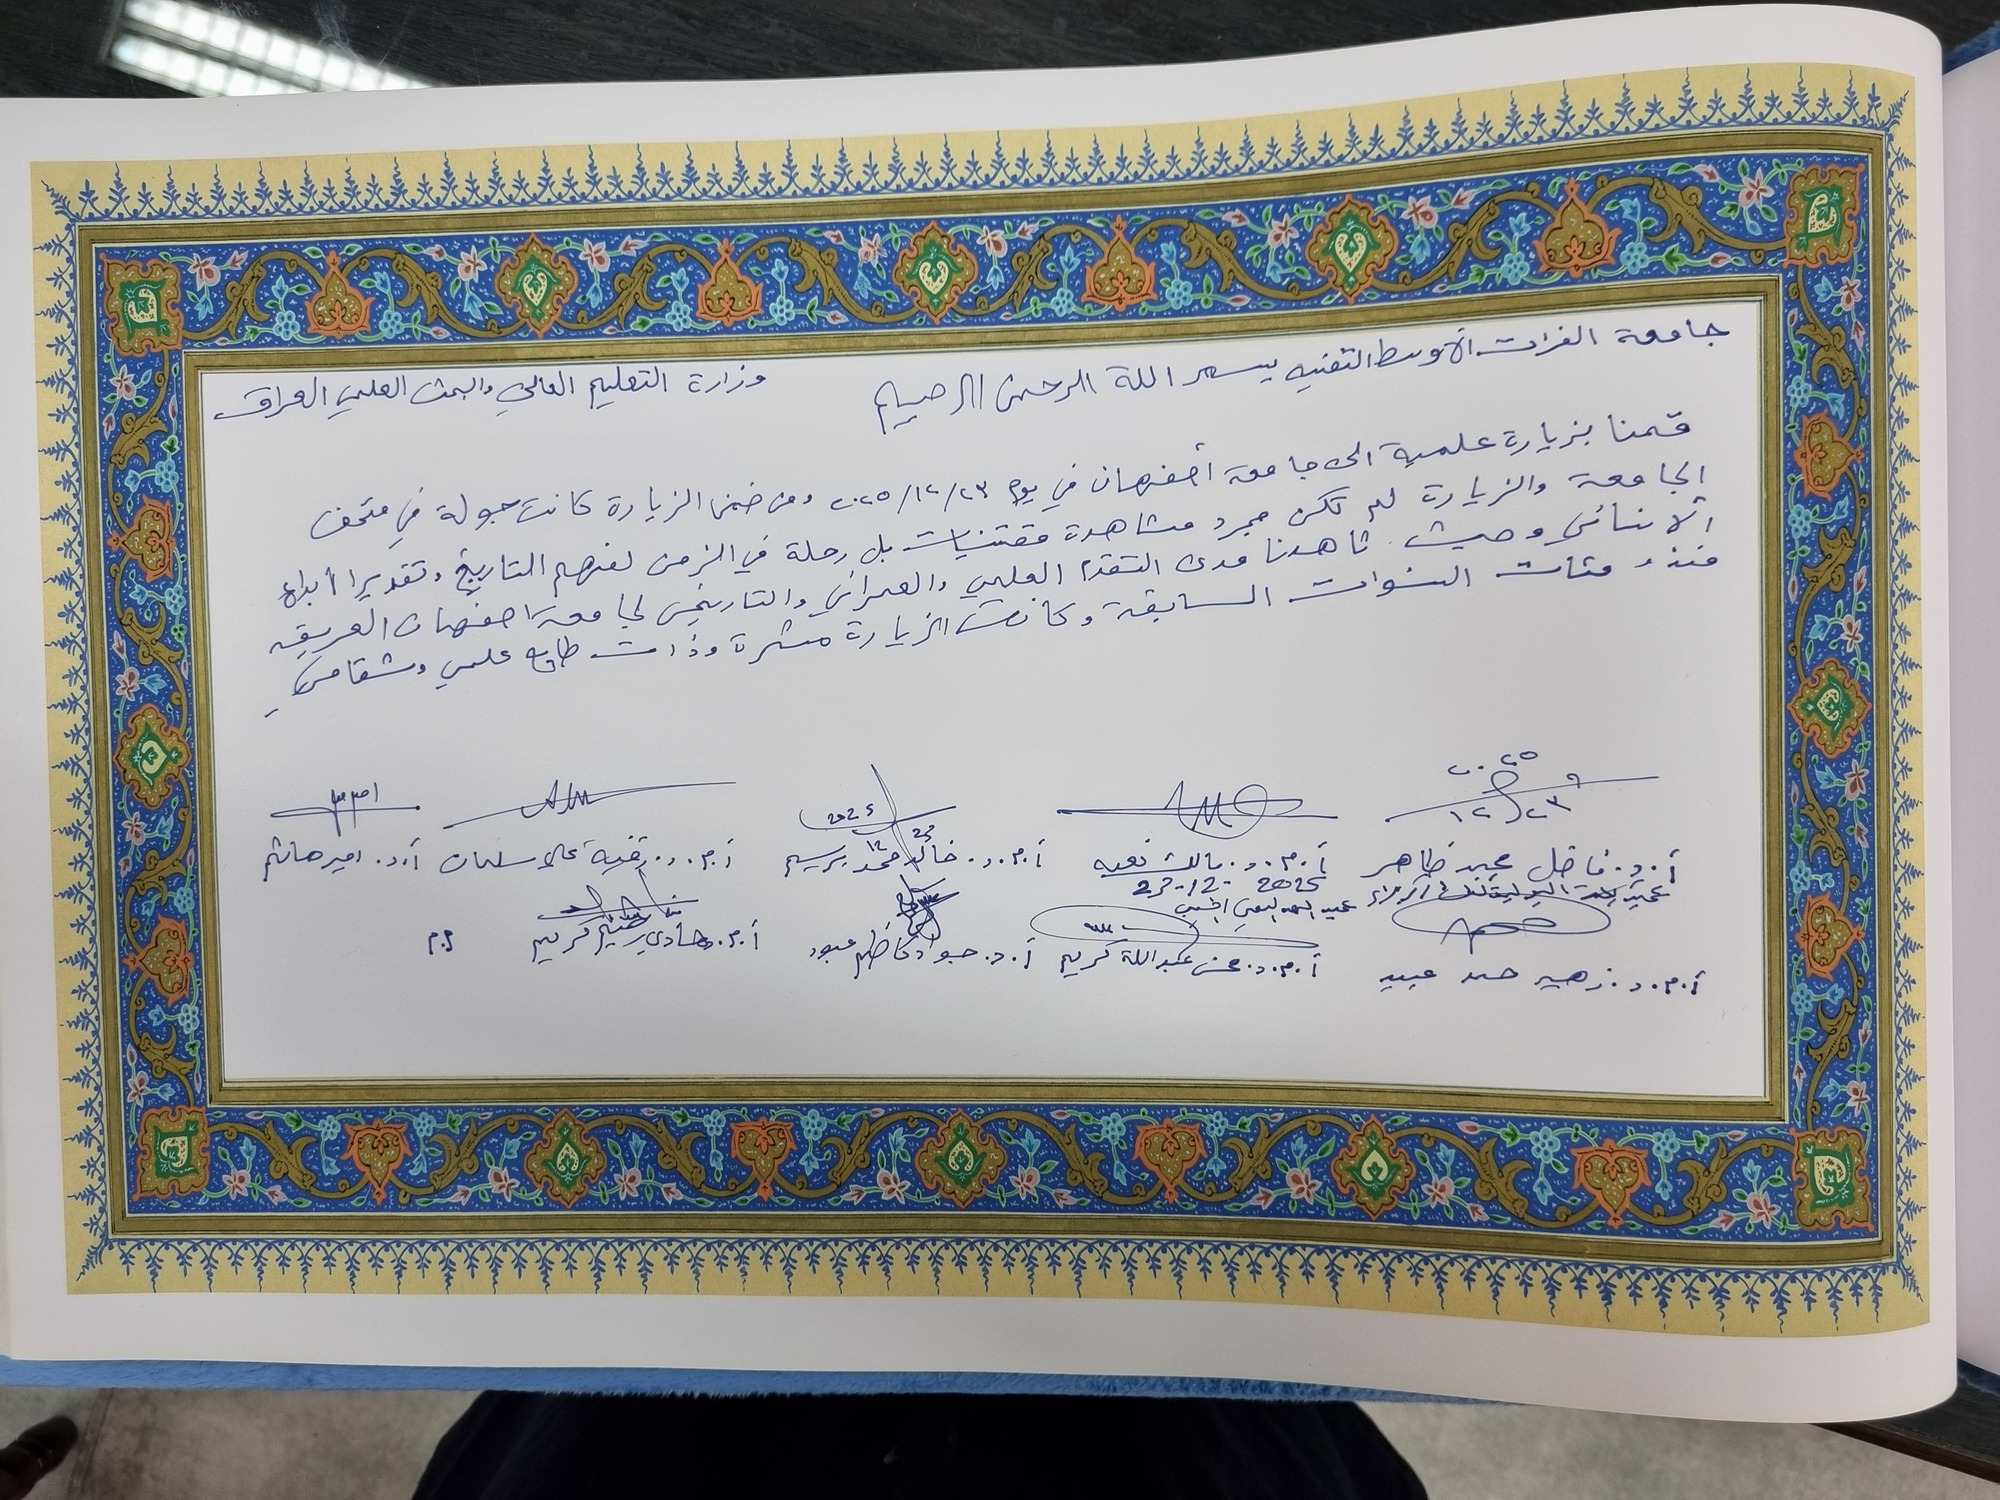 جامعة الفرات الأوسط التقنيه بسم اللة الرحمن الرحيم وزارة التعليم العالي والبحث العلمي العراق
قمنا بزيارة علمية الى جامعة أصفهان في يوم ٢٠٢٥/١٢/٢٣ ومن ضمن الزيارة كانت جولة في متحف
الجامعة والزيارة لم تكن مجرد مشاهدة مقتنيات بل رحلة في الزمن لفهم التاريخ وتقديرا أبداع
الانساني وحيث شاهدنا مدى التقدم العلمي والعمراني والتاريخي لجامعة اصفهان العريقه
منذ مئات السنوات السابقة وكانت الزيارة مثمرة وذات طابع علمي وثقافي
٢٠٢٥
١٢/٢٣
2025
12 23
أ.د. فاضل محمد ظاهر أ.م.د. مالك نعمه أ.م.د. خالد محمد بريسم أ.م.د. رقية علا سلمان أ.د. امير هاشم
23-12-2025
عميد المعهد التقني
أ.م.د. زهير حمد عبيد أ.م.د. محسن عبداللة كريم أ.د. جواد كاظم عبود أ.م.د. هادي رحيم كريم م.م